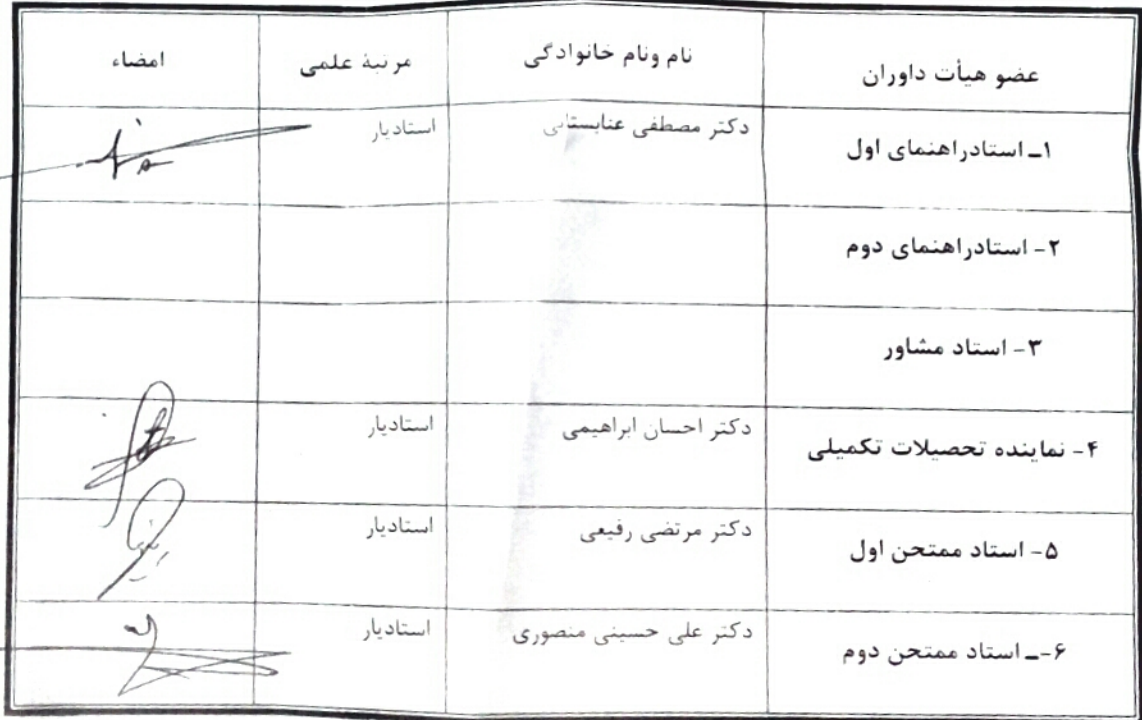 عضو هیأت داوران نام ونام خانوادگی مرتبهٔ علمی امضاء
۱ـ استادراهنمای اول دکتر مصطفی عنابستانی استادیار
۲- استادراهنمای دوم
۳- استاد مشاور
۴- نماینده تحصیلات تکمیلی دکتر احسان ابراهیمی استادیار
۵- استاد ممتحن اول دکتر مرتضی رفیعی استادیار
۶-ـ استاد ممتحن دوم دکتر علی حسینی منصوری استادیار